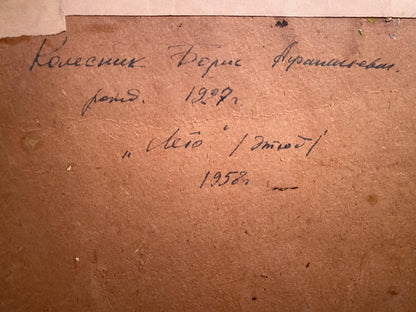 Колесник Борис Афанасьевич
рожд. 1927г.
"Лето" /этюд/
1958г